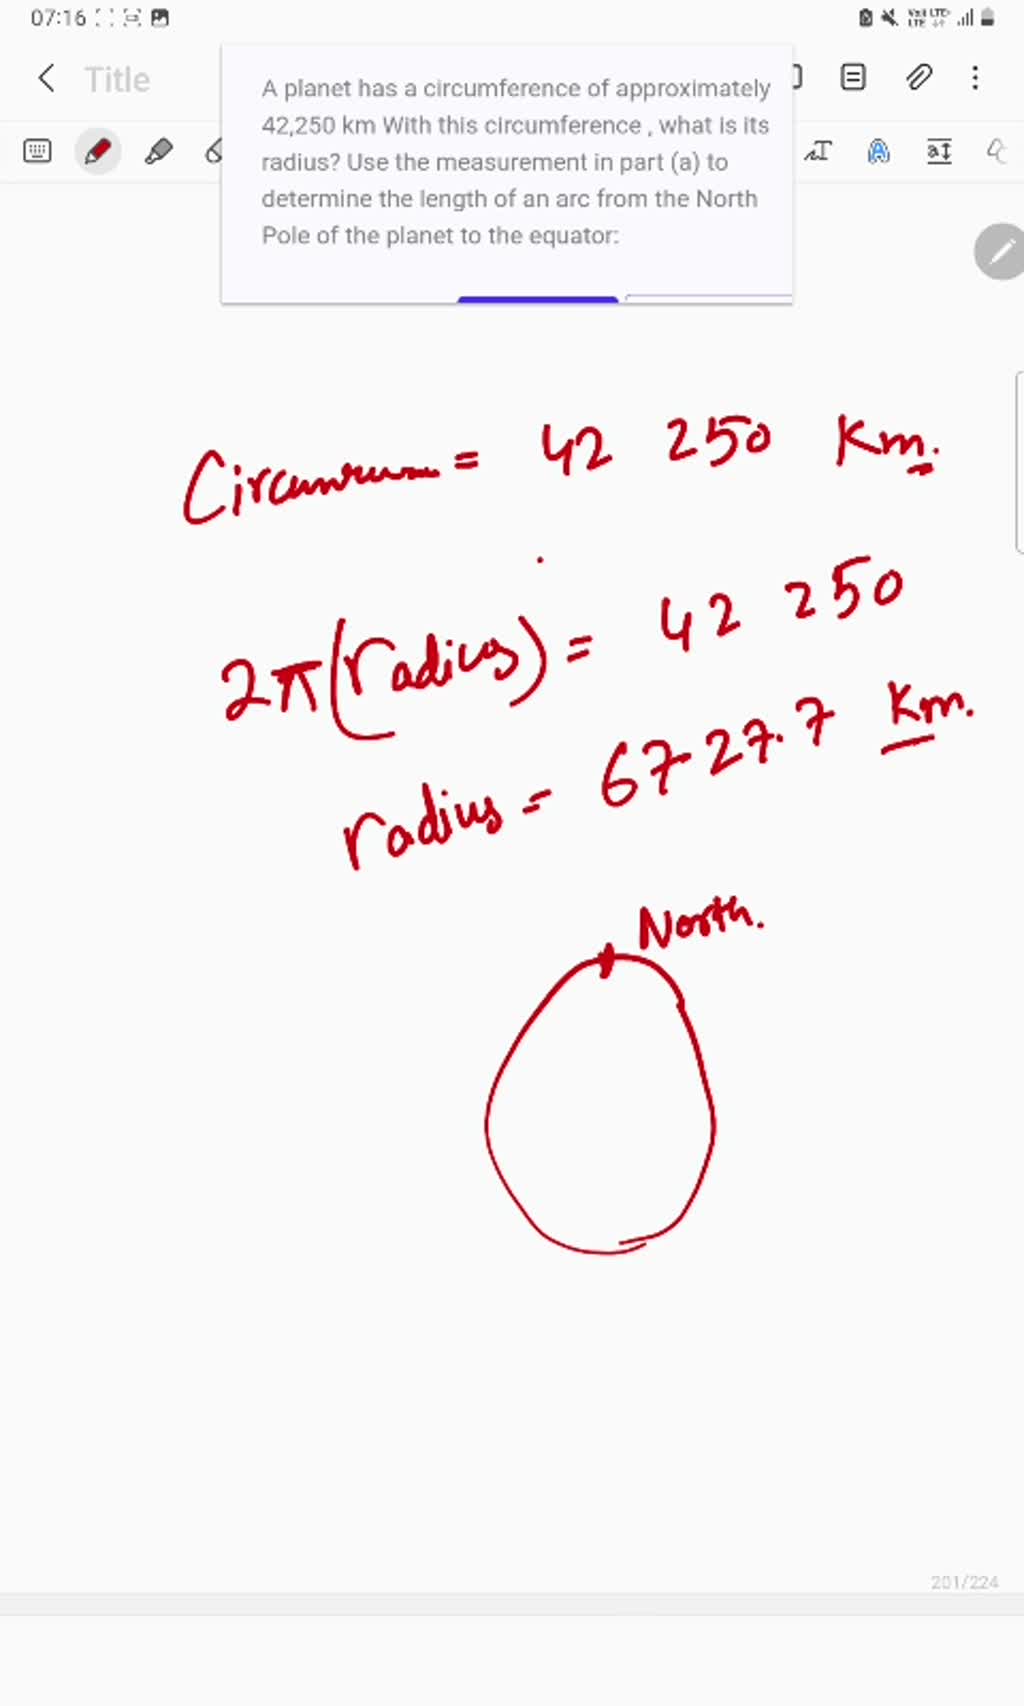 07:16
Title
A planet has a circumference of approximately
42,250 km With this circumference , what is its
radius? Use the measurement in part (a) to
determine the length of an arc from the North
Pole of the planet to the equator:
= 42 250 Km.
2π(radius) = 42 250
radius = 6727.7 Km.
North.
201/224